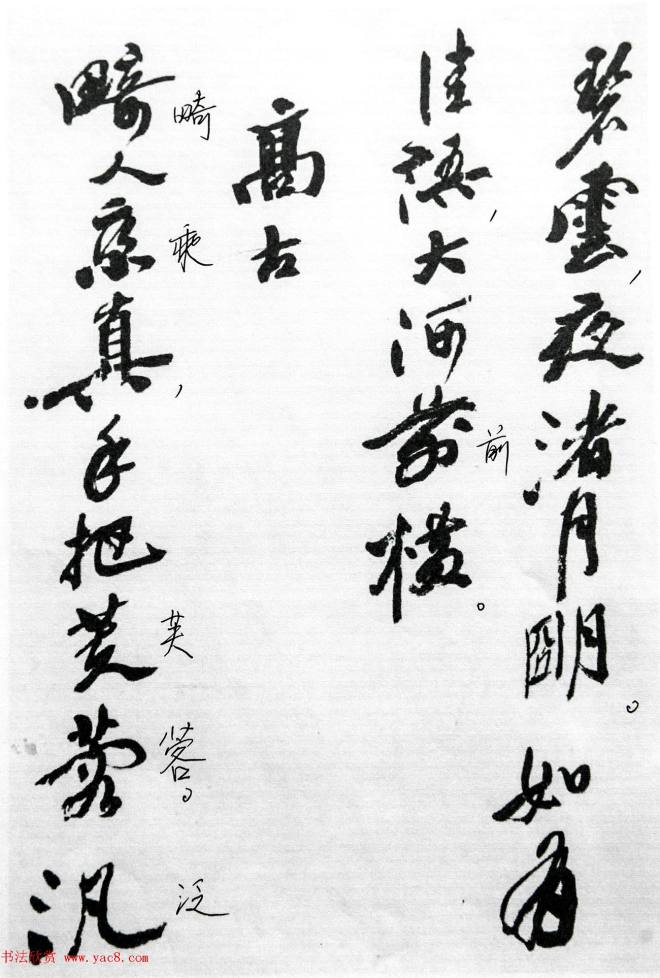 碧雲,夜渚月朙。如有
佳語,大河前橫。
前
高古
畸人乘真,手把芙蓉汎
畸 乘 芙 蓉。 泛
书法欣赏 www.yac8.com